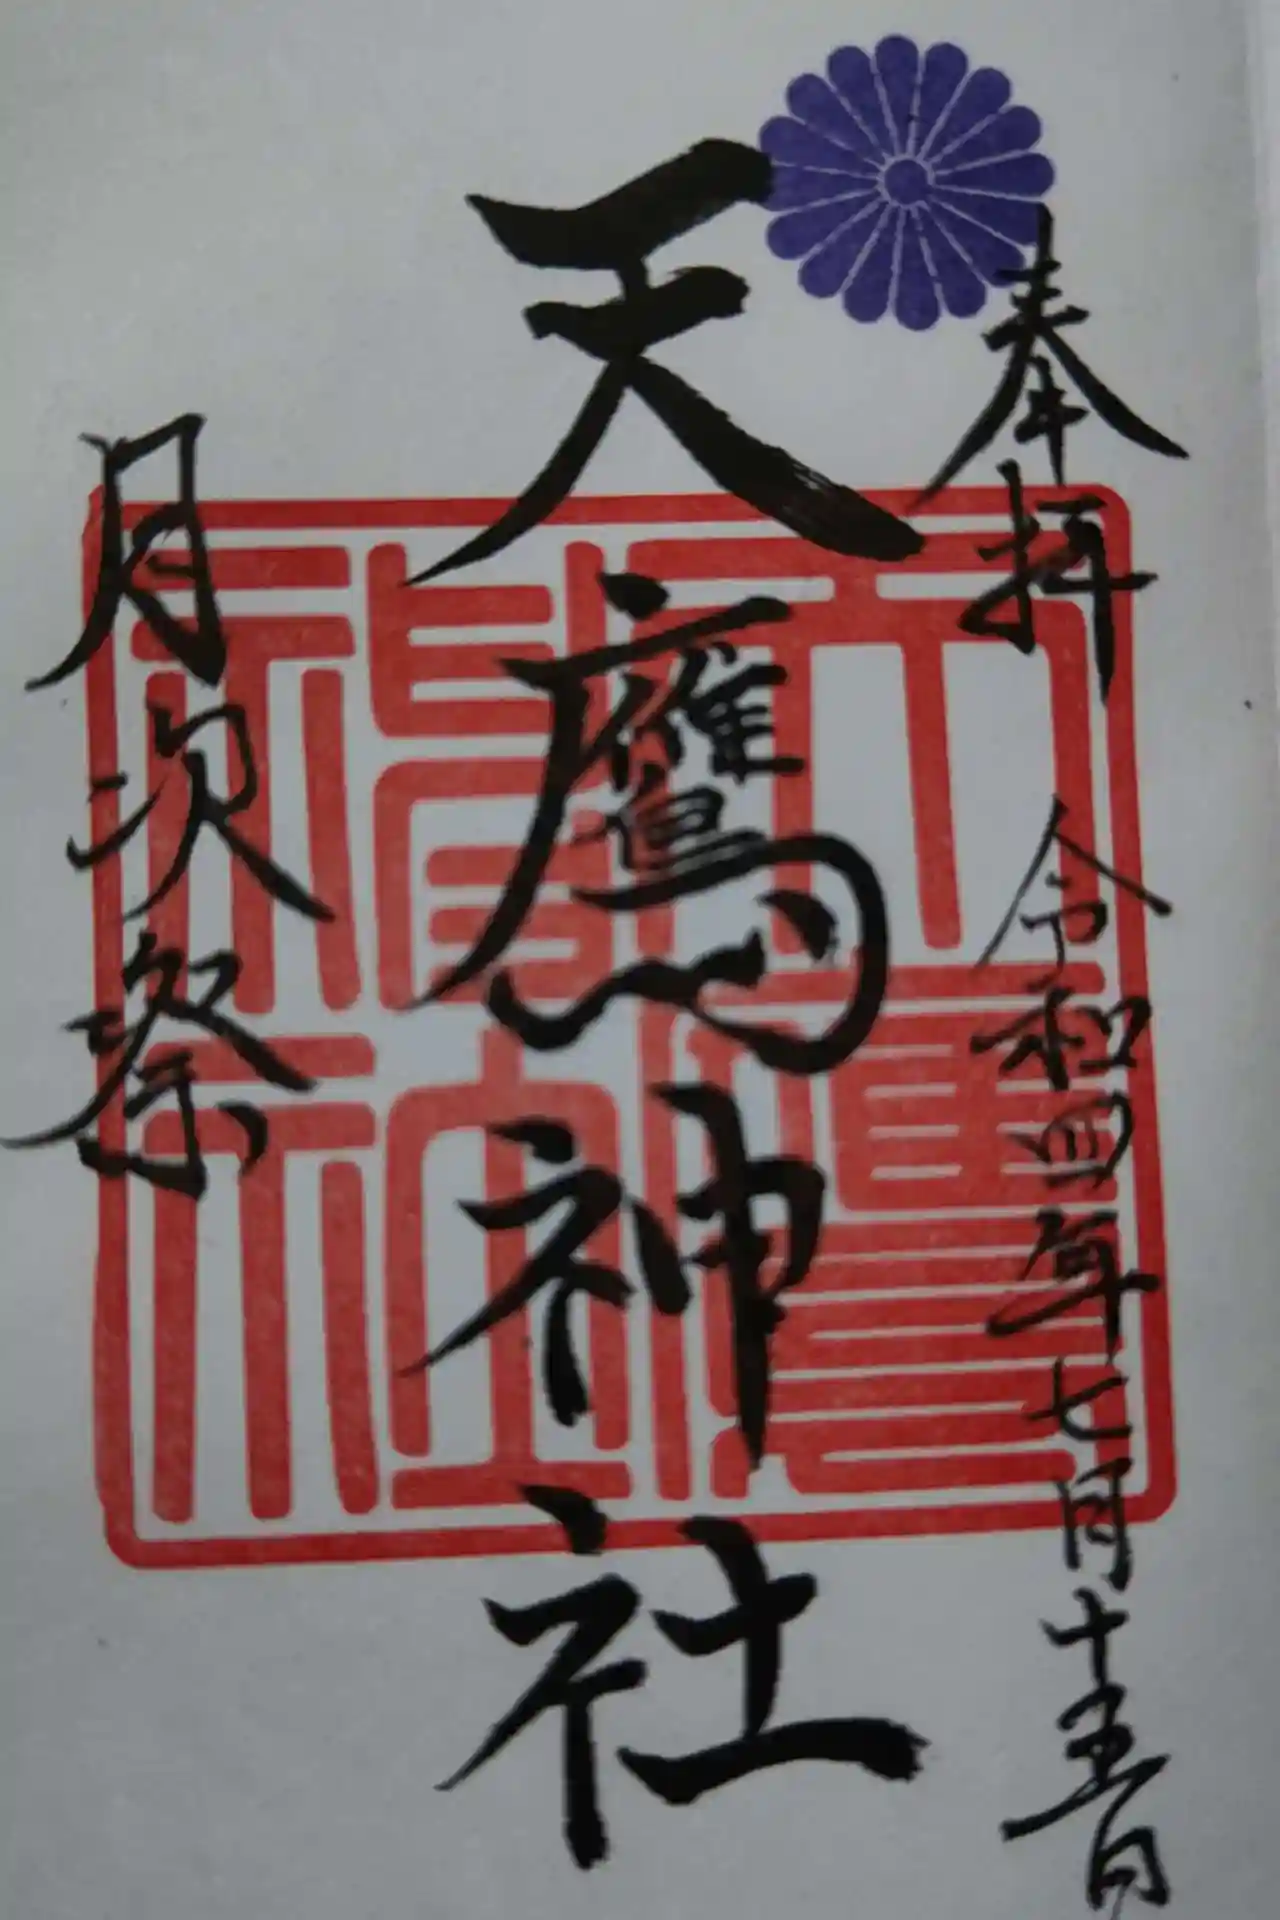 奉拝 令和四年七月十五日
天鷹神社
月次祭
天鷹神社